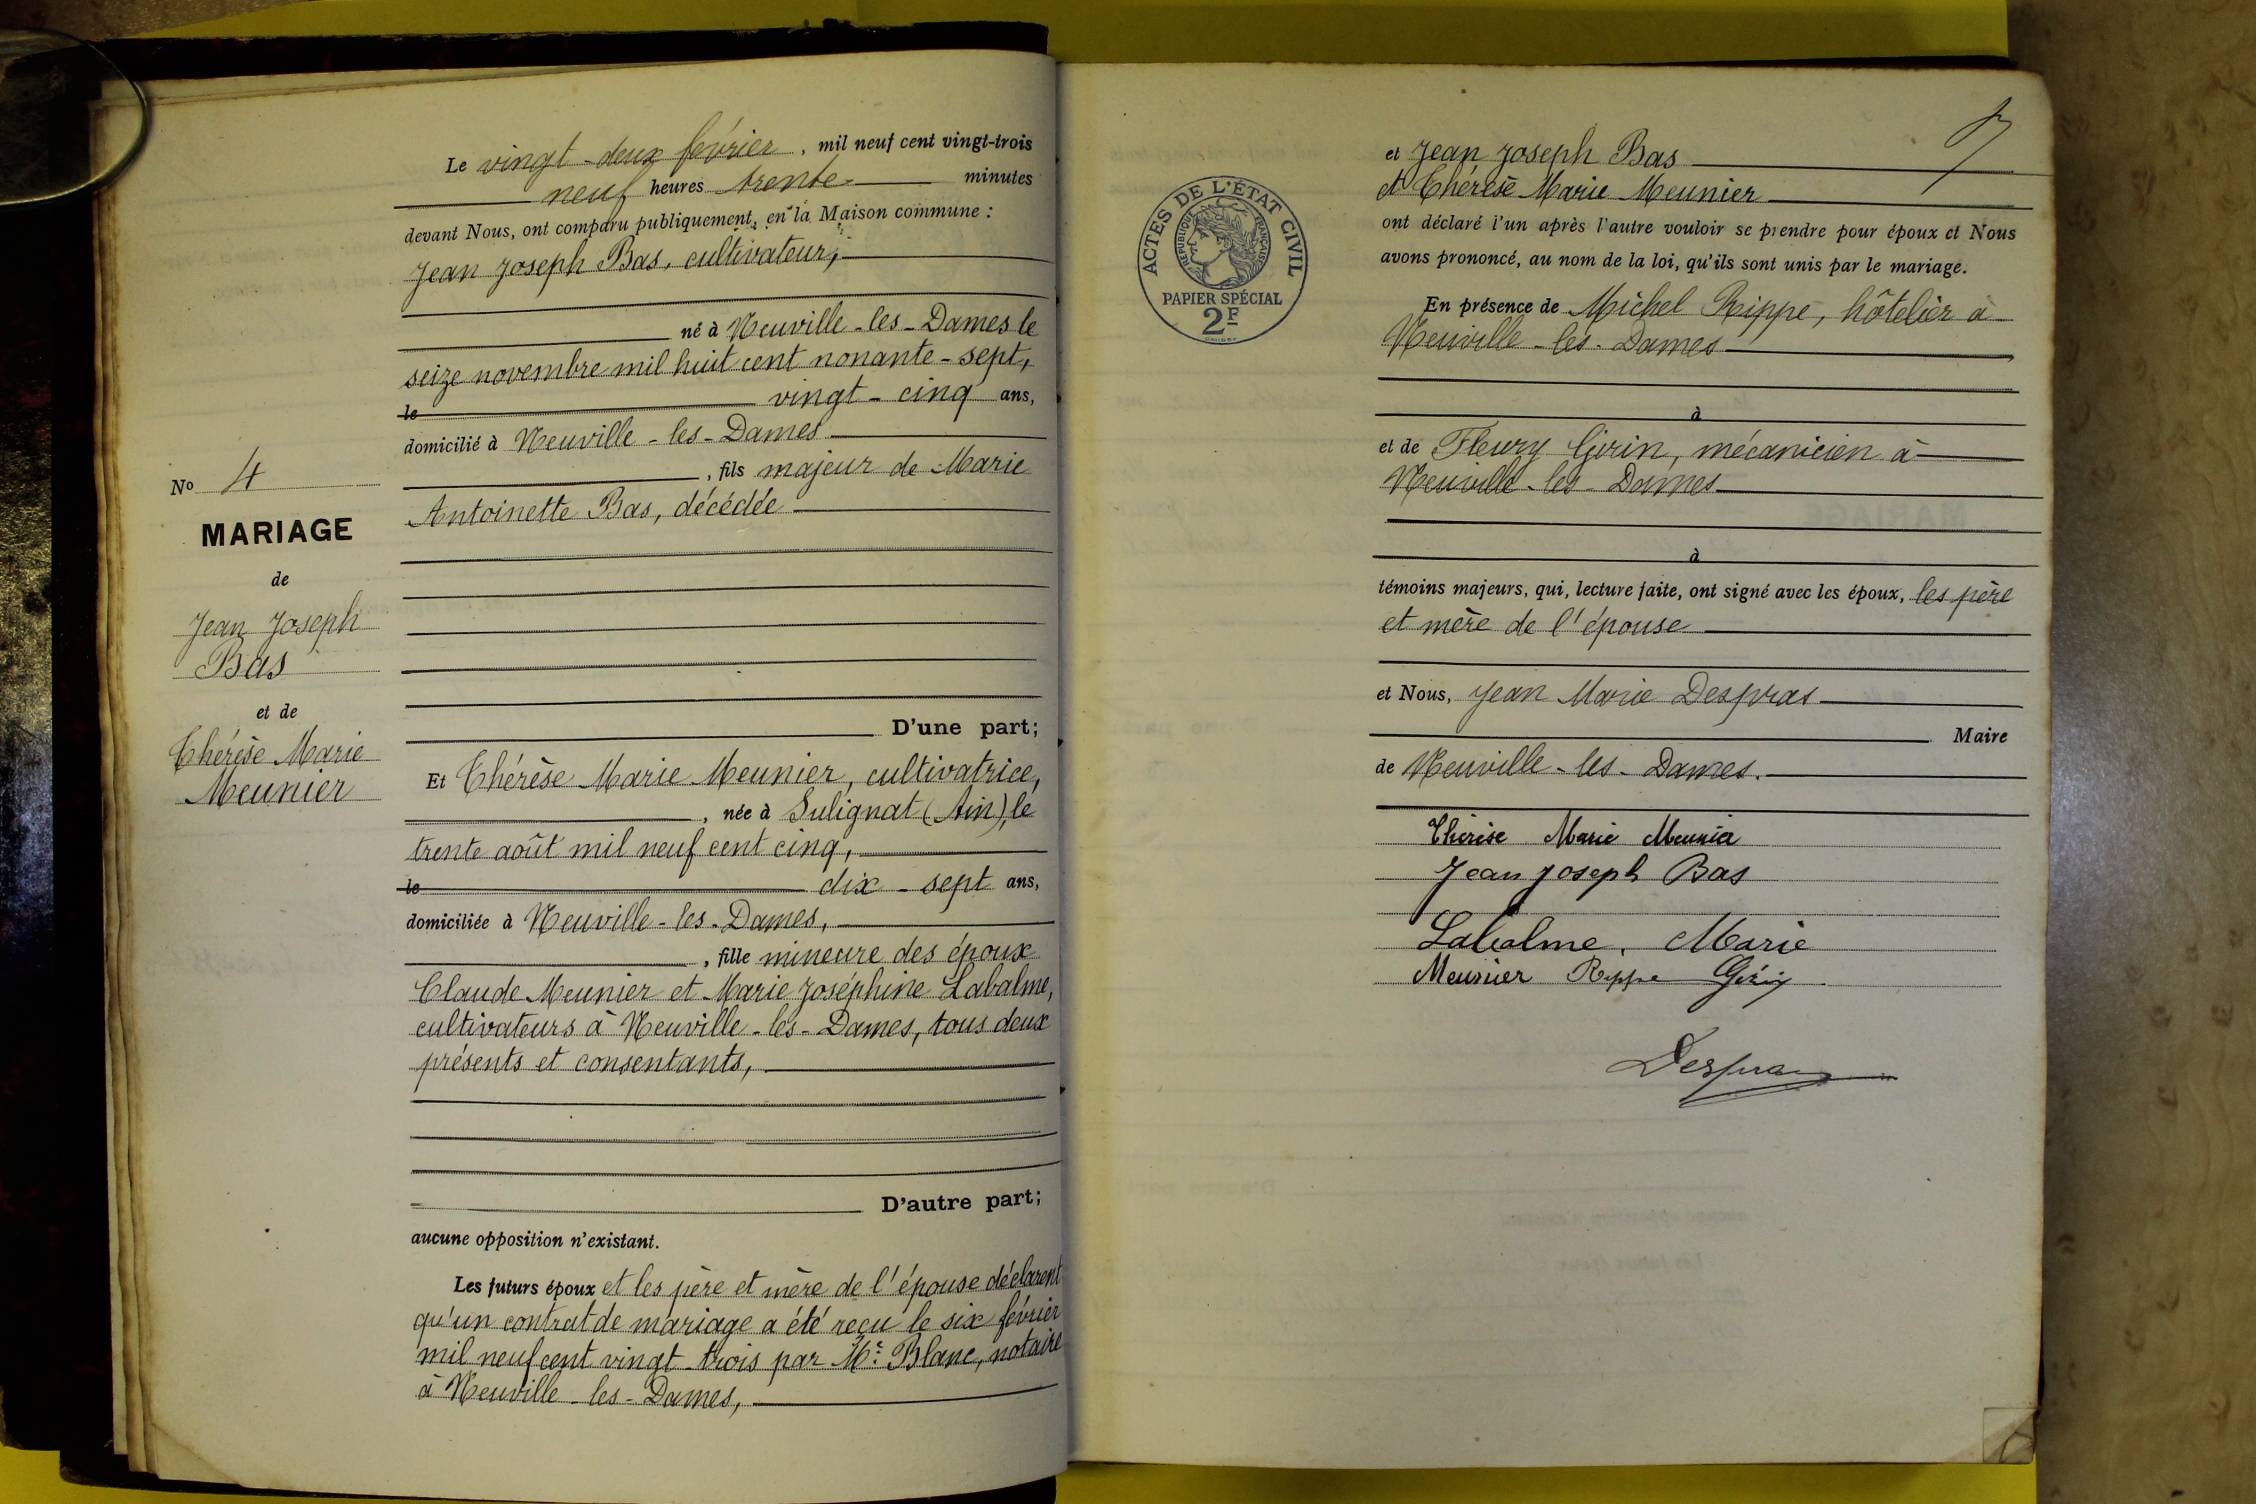 Le vingt-deux février, mil neuf cent vingt-trois
neuf heures trente minutes
devant Nous, ont comparu publiquement, en la Maison commune :
Jean Joseph Bas, cultivateur,
né à Neuville-les-Dames le
seize novembre mil huit cent nonante-sept,
le vingt-cinq ans,
domicilié à Neuville-les-Dames
, fils majeur de Marie
Antoinette Bas, décédée
No 4
MARIAGE
de
Jean Joseph
Bas
et de
Thérèse Marie
Meunier
D'une part;
Et Thérèse Marie Meunier, cultivatrice,
, née à Sulignat (Ain), le
trente août mil neuf cent cinq,
le dix-sept ans,
domiciliée à Neuville-les-Dames,
, fille mineure des époux
Claude Meunier et Marie Joséphine Labalme,
cultivateurs à Neuville-les-Dames, tous deux
présents et consentants,
D'autre part;
aucune opposition n'existant.
Les futurs époux et les père et mère de l'épouse déclarent
qu'un contrat de mariage a été reçu le six février
mil neuf cent vingt-trois par Me Blanc, notaire
à Neuville-les-Dames,
ACTES DE L'ÉTAT CIVIL
RÉPUBLIQUE FRANÇAISE
PAPIER SPÉCIAL
2F
et Jean Joseph Bas
et Thérèse Marie Meunier
ont déclaré l'un après l'autre vouloir se prendre pour époux et Nous
avons prononcé, au nom de la loi, qu'ils sont unis par le mariage.
En présence de Michel Rippe, hôtelier à
Neuville-les-Dames
à
et de Fleury Girin, mécanicien à
Neuville-les-Dames
à
témoins majeurs, qui, lecture faite, ont signé avec les époux, les père
et mère de l'épouse
et Nous, Jean Marie Despras
Maire
de Neuville-les-Dames.
Thérèse Marie Meunier
Jean Joseph Bas
Labalme, Marie
Meunier Rippe Girin
Despras